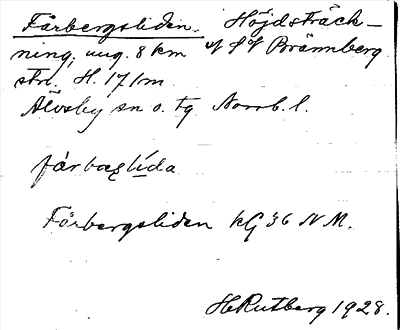 Fårbergsliden. Höjdsträck-
ning, ung. 8 km v f Brännberg
stn. H. 171 m
Älvsby sn o. tg Norrb. l.
fårbæʂlída
Fårbergsliden kG 36 N M.
H Rutberg 1928.